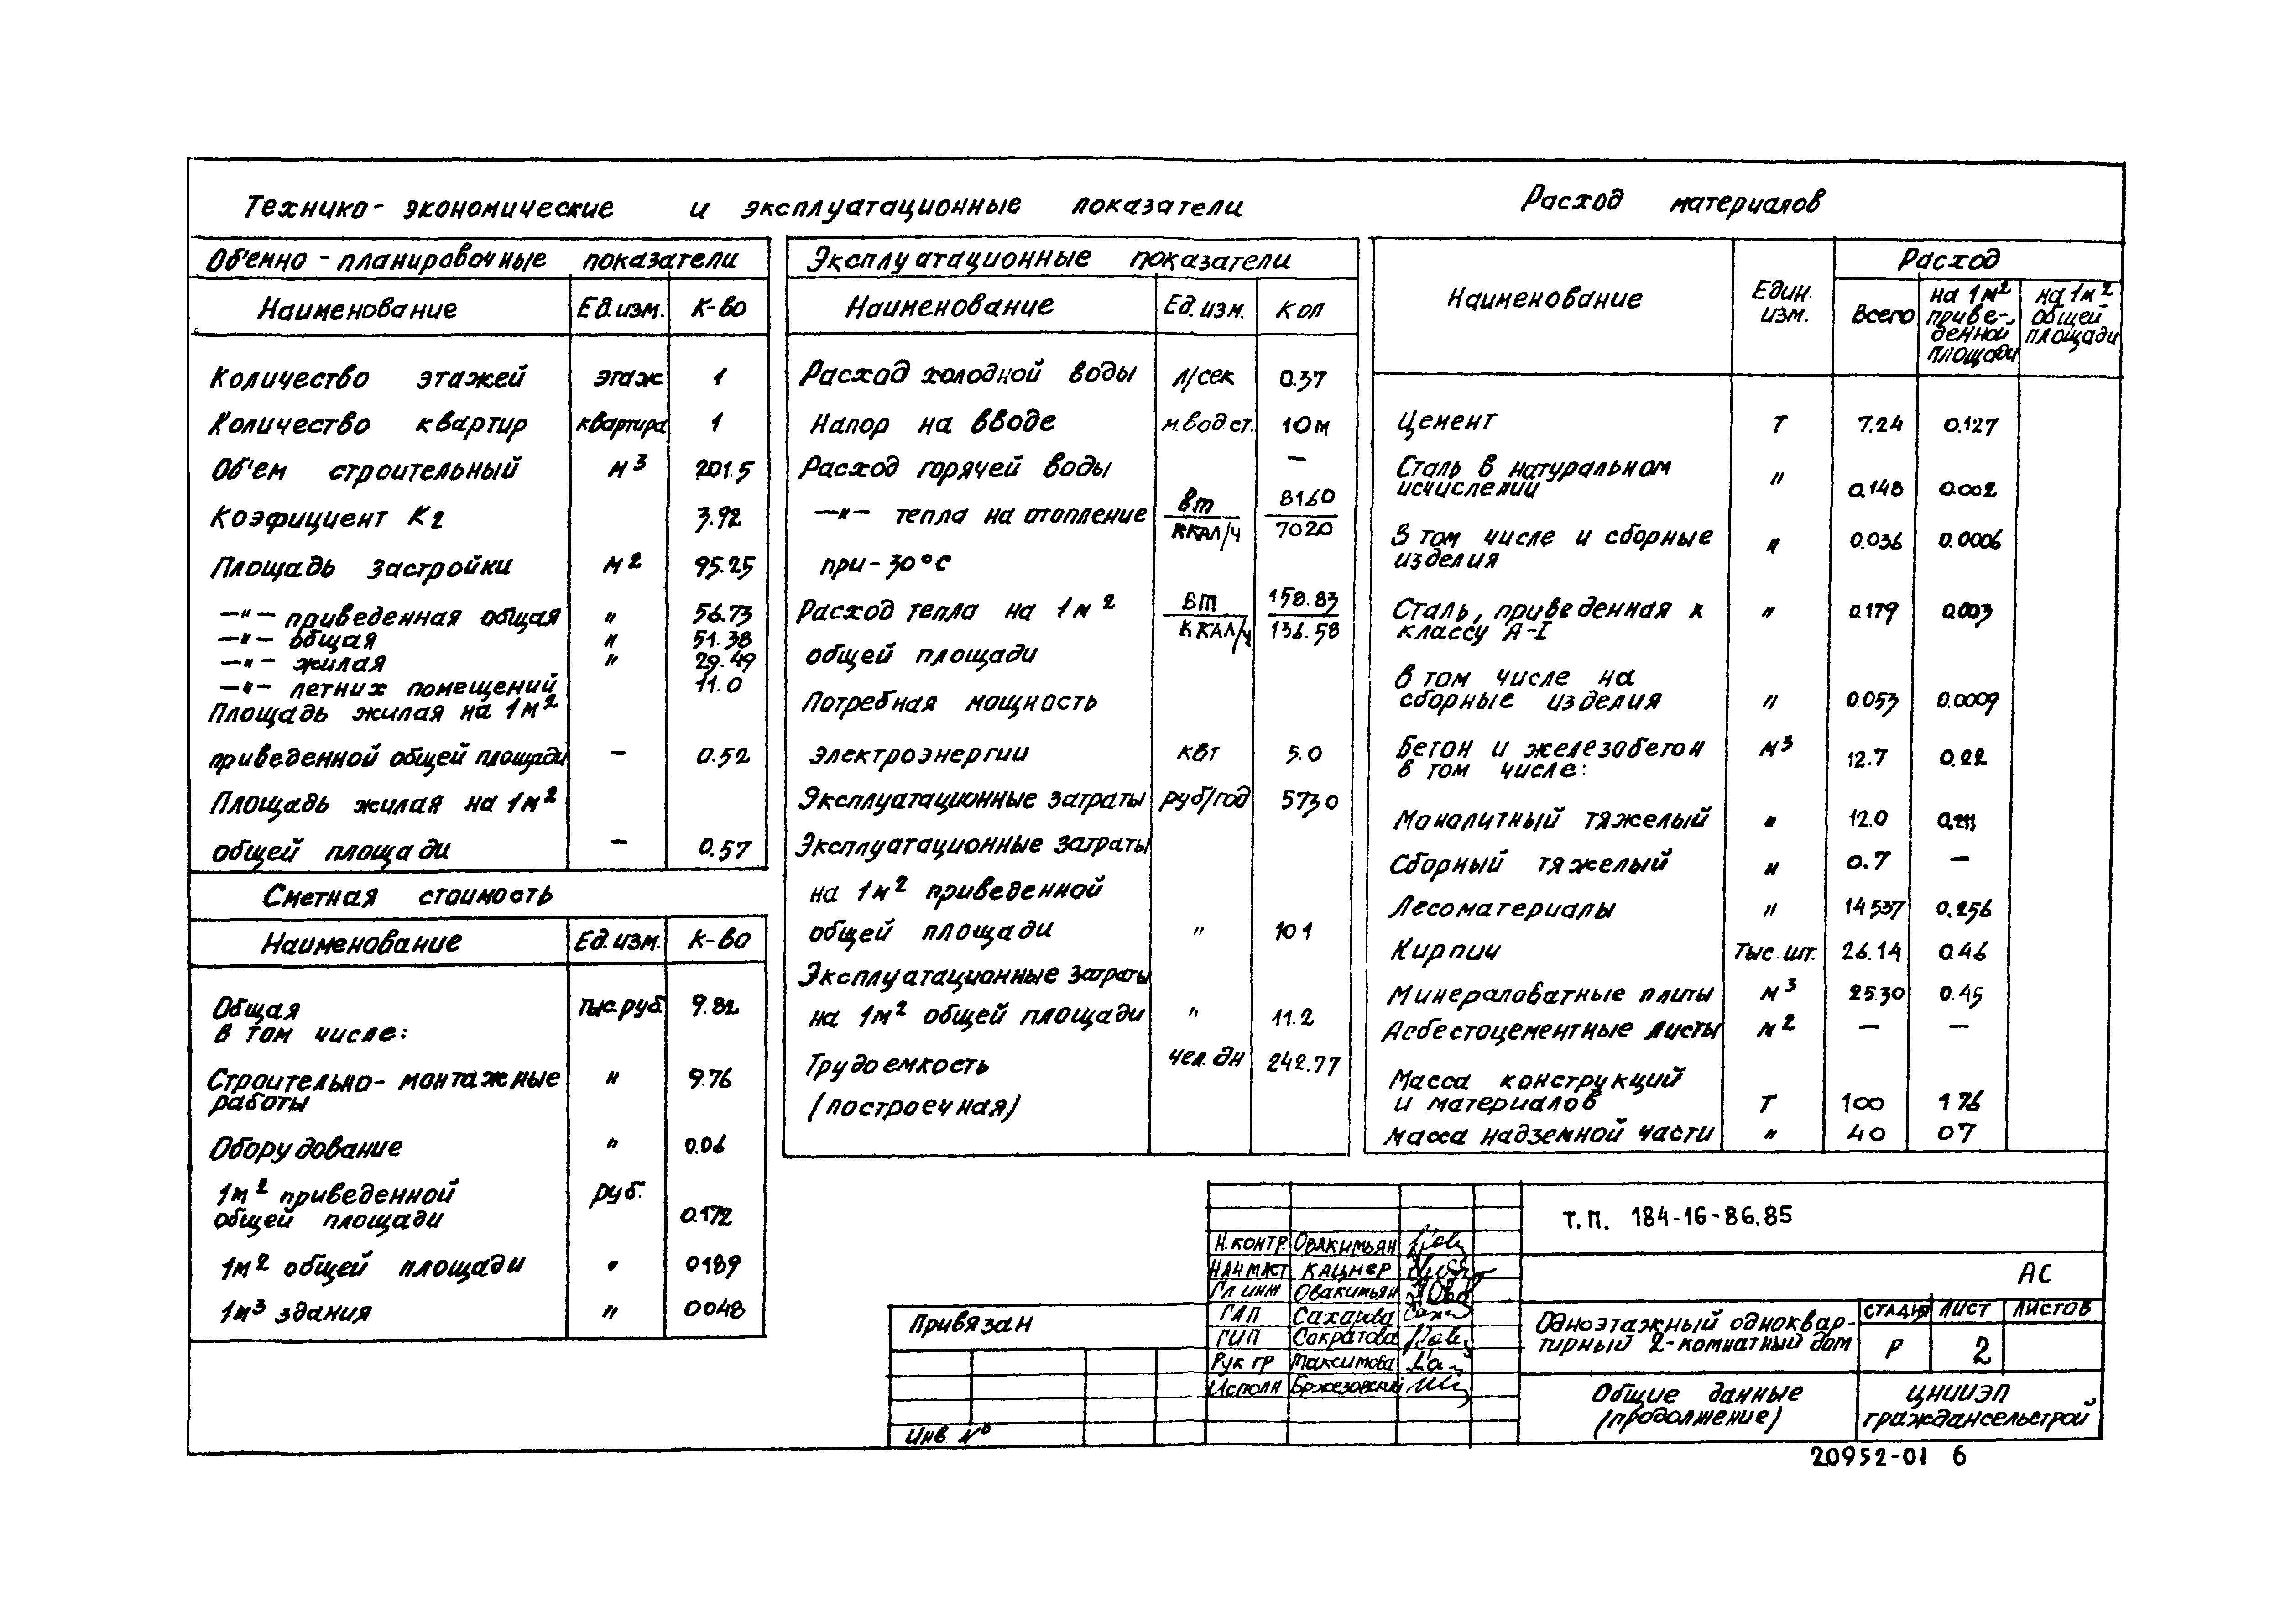 Технико-экономические и эксплуатационные показатели
Об'емно-планировочные показатели
Наименование Ед.изм. К-во
Количество этажей этаж 1
Количество квартир квартира 1
Об'ем строительный м³ 201.5
Коэфициент К2 3.92
Площадь застройки м² 95.25
—"— приведенная общая " 56.73
—"— общая " 51.38
—"— жилая " 29.49
—"— летних помещений 11.0
Площадь жилая на 1м²
приведенной общей площади — 0.52
Площадь жилая на 1м²
общей площади — 0.57
Сметная стоимость
Наименование Ед.изм. К-во
Общая тыс.руб 9.82
в том числе:
Строительно-монтажные " 9.76
работы
Оборудование " 0.06
1м² приведенной руб.
общей площади 0.172
1м² общей площади " 0189
1м³ здания " 0048
Эксплуатационные показатели
Наименование Ед.изм. Кол
Расход холодной воды л/сек 0.37
Напор на вводе м.вод.ст. 10м
Расход горячей воды —
—"— тепла на отопление вт 8160
ккал/ч 7020
при-30°С
Расход тепла на 1м² вт 158.83
ккал/ч 136.58
общей площади
Потребная мощность
электроэнергии квт 5.0
Эксплуатационные затраты руб/год 5730
Эксплуатационные затраты
на 1м² приведенной
общей площади " 101
Эксплуатационные затраты
на 1м² общей площади " 11.2
Трудоемкость чел.дн 242.77
(построечная)
Расход материалов
Наименование Един. изм. Расход
Всего на 1м² приве-денной площади на 1м² общей площади
Цемент Т 7.24 0.127
Сталь в натуральном
исчислении " 0.148 0.002
В том числе и сборные " 0.036 0.0006
изделия
Сталь, приведенная к " 0.179 0.003
классу А-I
в том числе на
сборные изделия " 0.053 0.0009
Бетон и железобетон м³ 12.7 0.22
в том числе:
Монолитный тяжелый " 12.0 0.211
Сборный тяжелый " 0.7 —
Лесоматериалы " 14537 0.256
Кирпич Тыс.шт. 26.14 046
Минераловатные плиты м³ 25.30 0.45
Асбестоцементные листы м² — —
Масса конструкций
и материалов Т 100 176
Масса надземной части " 40 07
Привязан
Инв. №
Н.контр. Овакимьян
Нач маст Кацнер
Гл инж Овакимьян
ГАП Сахарова
ГИП Сократова
Рук гр Максимова
Исполн Бржезовский
Т.П. 184-16-86.85
АС
Одноэтажный одноквар-
тирный 2-комнатный дом
Стадия Лист Листов
Р 2
Общие данные
(продолжение)
ЦНИИЭП
граждансельстрой
20952-01 6